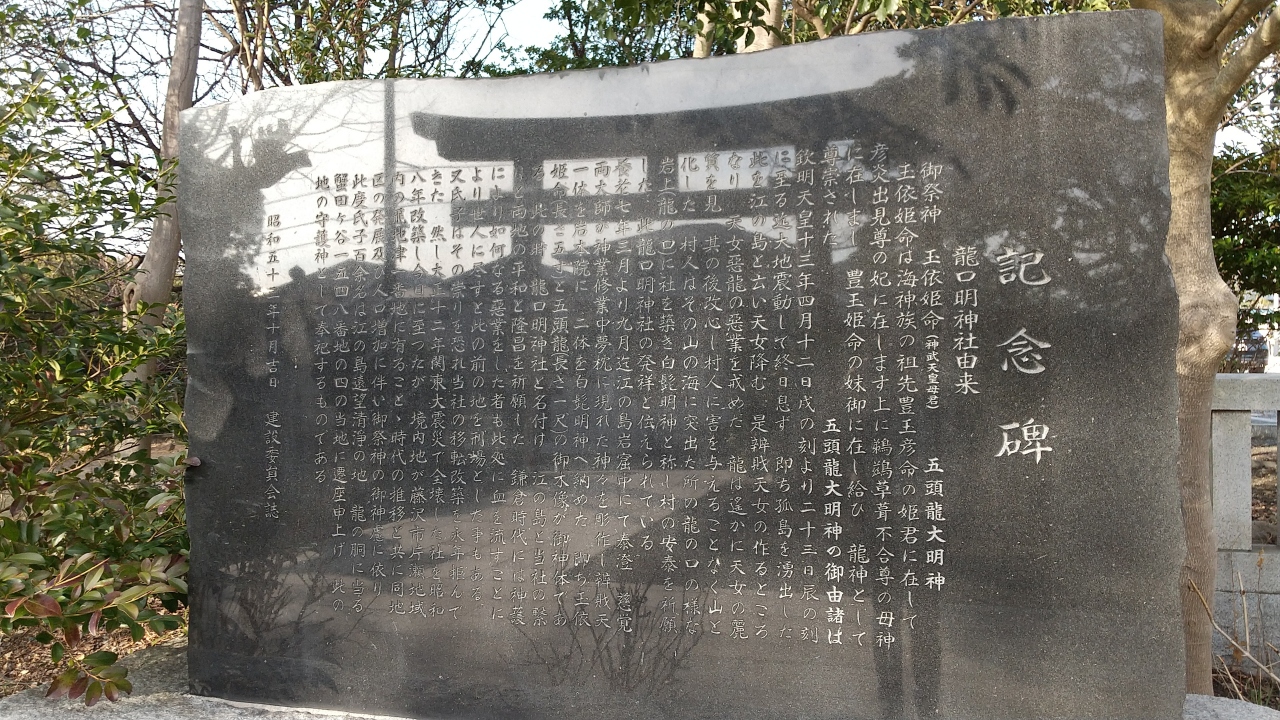 記念碑
龍口明神社由来
御祭神 玉依姫命(神武天皇母君) 五頭龍大明神
玉依姫命は海神族の祖先豊玉彦命の姫君に在して
彦火火出見尊の妃に在します上に鵜鷀草葺不合尊の母神
に在しまし 豊玉姫命の妹御に在し給ひ 龍神として
尊崇された 五頭龍大明神の御由諸は
欽明天皇十三年四月十二日戌の刻より二十三日辰の刻
に至る迄大地震動して終日息ず 即ち孤島を湧出した
此を江の島と云い天女降む 是辨戝天女の作るところ
なり 天女惡龍の惡業を戒めた 龍は遙かに天女の麗
質を見 其の後改心し村人に害を与えることなく山と
化した 村人はその山の海に突出た所の龍の口の様な
岩上龍の口に社を築き白髭明神と称し村の安泰を祈願
した 此龍口明神社の発祥と伝えられている
養老七年三月より九月迄江の島岩窟中にて泰澄 慈覚
両大師が神業修業中夢枕に現れた神々を彫作し辨戝天
一体を岩本院に 二体を白髭明神へ納めた 即ち玉依
姫命長さ五寸と五頭龍長さ一尺の御木像が御神体であ
る 此の時 龍口明神社と名付け 江の島と当社の繋
りを両地の平和と隆昌を祈願した 鎌倉時代には神護
により如何なる惡業をした者も此処に血を流すことに
より世人に尽すと此の前の地を刑場とした事もある
又氏子はその祟りを恐れ当社の移転改築を永年拒んで
きた 然し大正十二年関東大震災で全壊した社を昭和
八年改築し今日に至ったが 境内地が藤沢市片瀬地域
内の龍口津一番地に有ること 時代の推移と共に同地
区の発展及び人口増加に伴い御祭神の御神慮に依り
此度氏子百余名は江の島遠望清浄の地 龍の胴に当る
蟹田ヶ谷一五四八番地の四の当地に遷座申上げ 此の
地の守護神として奉祀するものである
昭和五十三年十月吉日 建設委員会誌